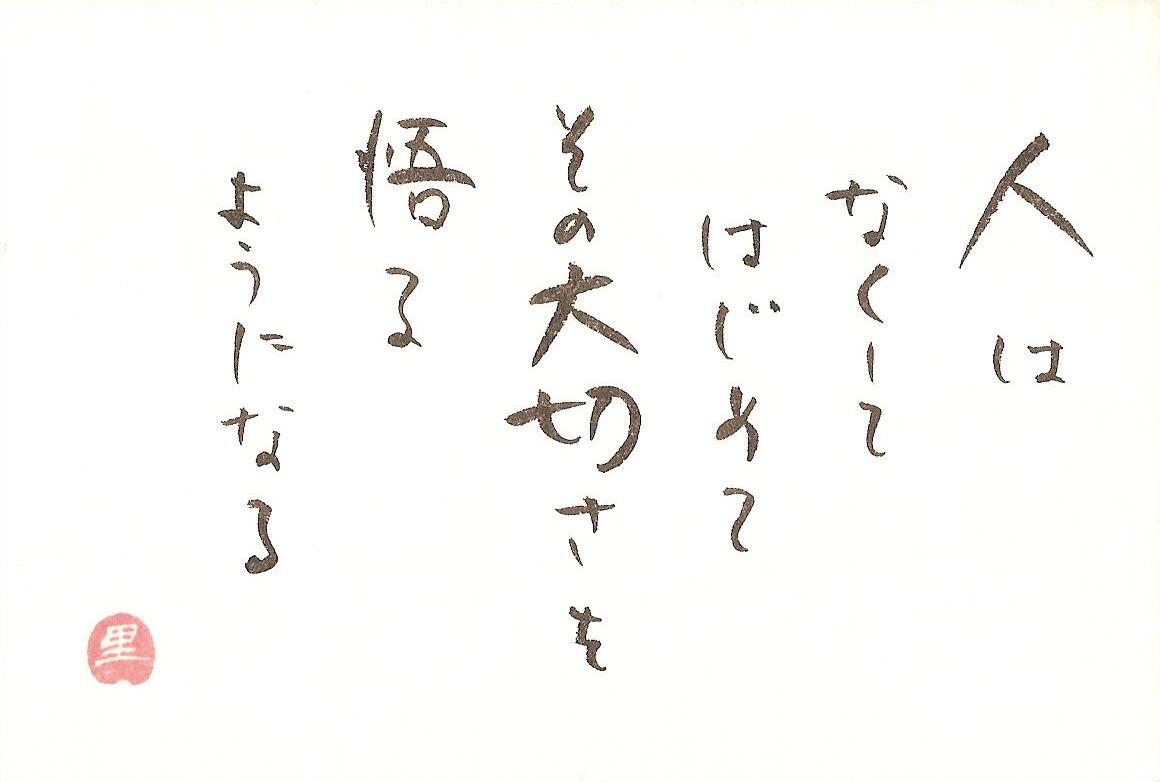 人は
なくして
はじめて
その大切さを
悟る
ようになる
里